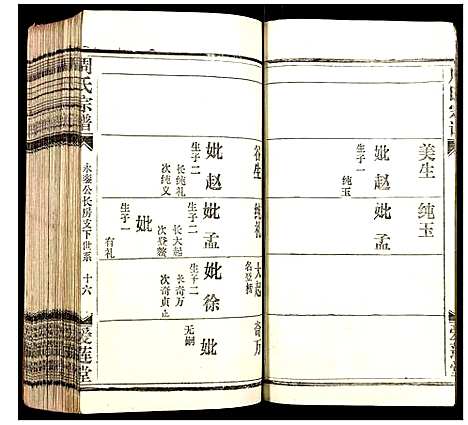 美生
妣赵
生子一
纯玉
纯玉
妣孟
谷生
妣赵
生子二
长纯礼
次纯义
纯礼
妣孟
生子二
长大起
次登鳌
妣
生子一
有礼
大起
妣徐
生子二
长奇万
次奇贞止
奇万
妣
无嗣
周氏宗谱
永泰公长房支下世系
十六
爱莲堂